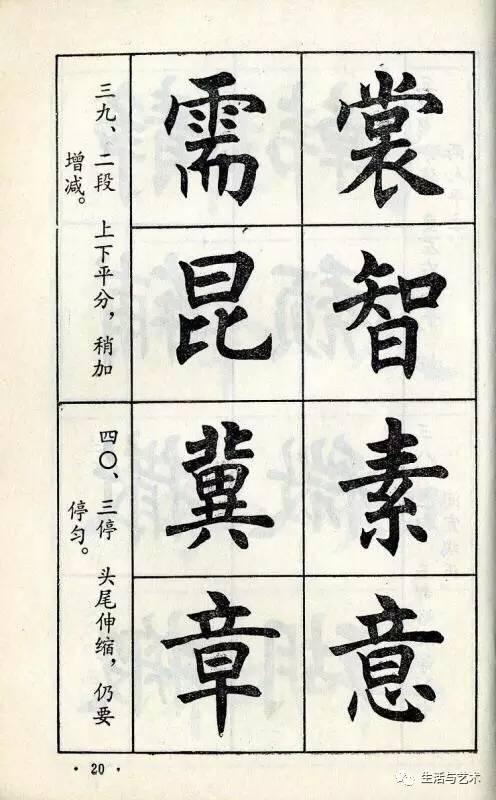 裳智
需昆
三九、二段 上下平分，稍加
增减。
素意
冀章
四〇、三停 头尾伸缩，仍要
停匀。
· 20 ·
生活与艺术